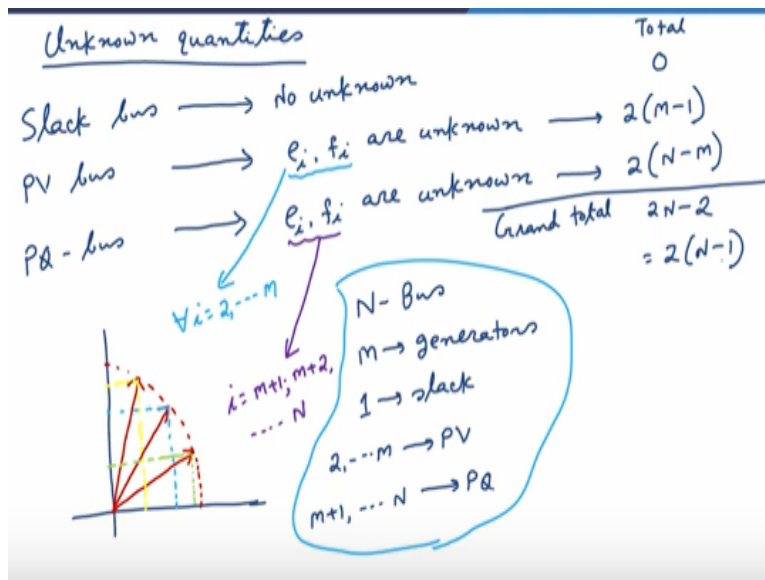 Unknown quantities
Total
Slack bus → No unknown 0
PV bus → ei, fi are unknown → 2(M-1)
PQ-bus → ei, fi are unknown → 2(N-M)
Grand total 2N-2
= 2(N-1)
∀ i=2,...M
i= M+1, M+2,
.... N
N- Bus
M→ generators
1→ slack
2,...M → PV
M+1, ... N → PQ